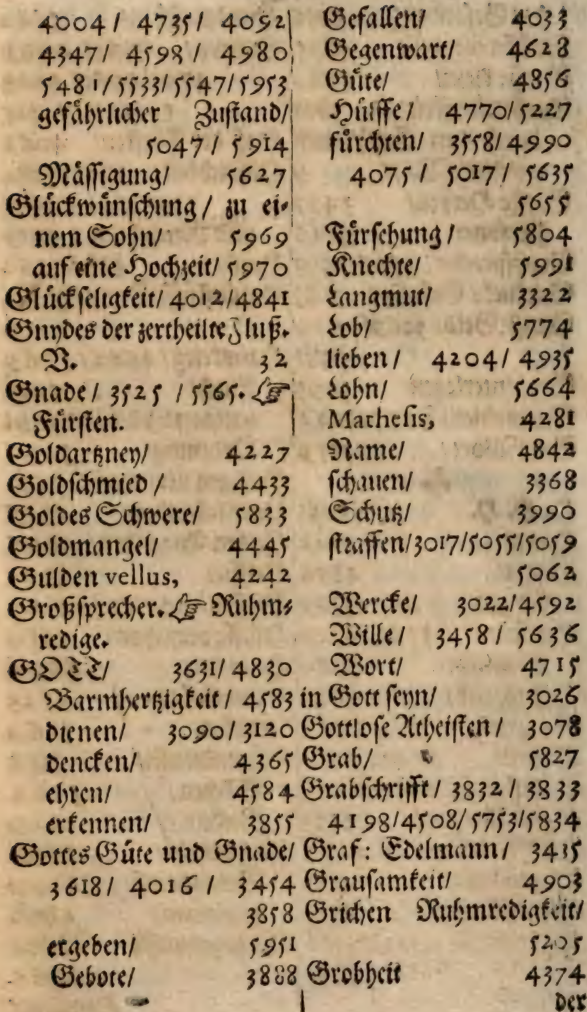 4004 / 4735/ 4092
4347/ 4598 / 4980
5481/5533/5547/5953
gefährlicher Zustand/
5047 / 5914
Mässigung/ 5627
Glückwünschung / zu ei-
nem Sohn/ 5969
auf eine Hochzeit/ 5970
Glückseligkeit/ 4012/4841
Gnydes der zertheilte Fluß.
V. 32
Gnade/ 3525 / 5565. ☞
Fürsten.
Goldartzney/ 4227
Goldschmied / 4433
Goldes Schwere/ 5833
Goldmangel/ 4445
Gulden vellus, 4242
Großsprecher. ☞ Ruhm-
redige.
GOTT/ 3631/ 4830
Barmhertzigkeit / 4583
dienen/ 3090/ 3120
dencken/ 4365
ehren/ 4584
erkennen/ 3855
Gottes Güte und Gnade/
3618/ 4016 / 3454
3858
ergeben/ 5951
Gebote/ 3888
Gefallen/ 4033
Gegenwart/ 4628
Güte/ 4856
Hülffe/ 4770/ 5227
fürchten/ 3558/ 4990
4075 / 5017 / 5635
5655
Fürsehung / 5804
Knechte/ 5991
Langmut/ 3322
Lob/ 5774
lieben / 4204/ 4935
Lohn/ 5664
Mathesis, 4281
Name/ 4842
schauen/ 3368
Schutz/ 3990
straffen/3017/5055/5059
5062
Wercke/ 3022/4592
Wille/ 3458 / 5636
Wort/ 4715
in Gott seyn/ 3026
Gottlose Atheisten / 3078
Grab/ 5827
Grabschrifft / 3832 / 3833
4198/4508/ 5753/5834
Graf: Edelmann / 3435
Grausamkeit/ 4903
Grichen Ruhmredigkeit/
5205
Grobheit 4374
der